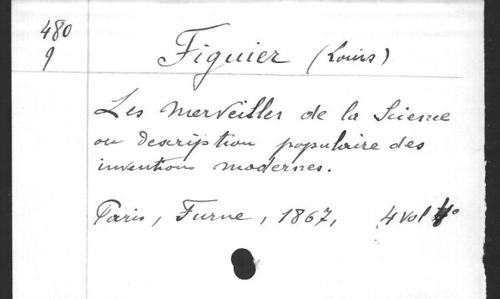 480
9
Figuier (Louis)
Les merveilles de la Science
ou description populaire des
inventions modernes.
Paris, Furne, 1867, 4 vol 4°